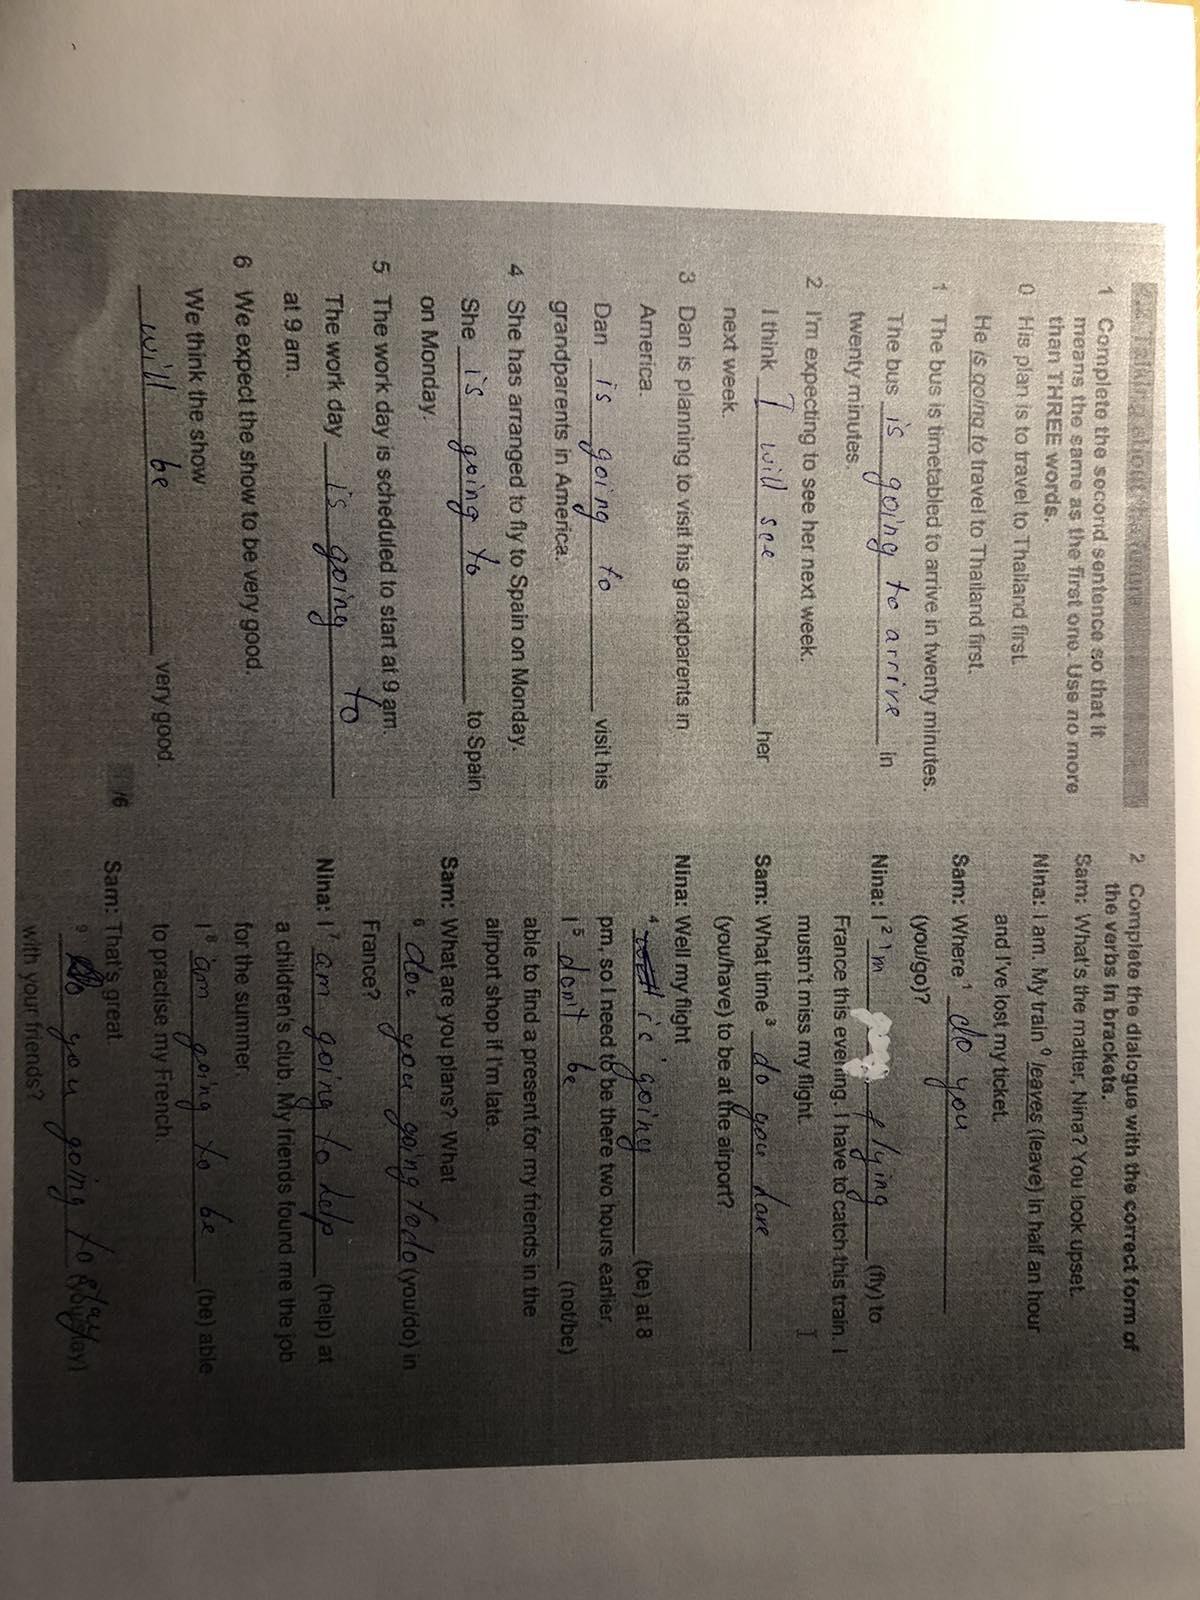 1 Complete the second sentence so that it
means the same as the first one. Use no more
than THREE words.
0 His plan is to travel to Thailand first.
He is going to travel to Thailand first.
1 The bus is timetabled to arrive in twenty minutes.
The bus is going to arrive in
twenty minutes.
2 I'm expecting to see her next week.
I think I will see her
next week.
3 Dan is planning to visit his grandparents in
America.
Dan is going to visit his
grandparents in America.
4 She has arranged to fly to Spain on Monday.
She is going to to Spain
on Monday.
5 The work day is scheduled to start at 9 am.
The work day is going to
at 9 am.
6 We expect the show to be very good.
We think the show
will be very good.
/6
2 Complete the dialogue with the correct form of
the verbs in brackets.
Sam: What's the matter, Nina? You look upset.
Nina: I am. My train 0 leaves (leave) in half an hour
and I've lost my ticket.
Sam: Where 1 do you
(you/go)?
Nina: I 2 'm flying (fly) to
France this evening. I have to catch this train. I
mustn't miss my flight.
Sam: What time 3 do you have
(you/have) to be at the airport?
Nina: Well my flight
4 is going (be) at 8
pm, so I need to be there two hours earlier.
I 5 don't be (not/be)
able to find a present for my friends in the
airport shop if I'm late.
Sam: What are you plans? What
6 do you going to do (you/do) in
France?
Nina: I 7 am going to help (help) at
a children's club. My friends found me the job
for the summer.
I 8 am going to be (be) able
to practise my French.
Sam: That's great.
9 do you going to stay (you/stay)
with your friends?